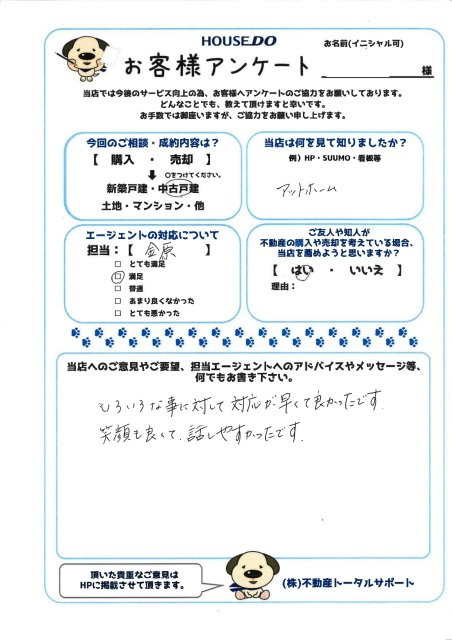 HOUSEDO
お名前(イニシャル可)
お客様アンケート
様
当店では今後のサービス向上の為、お客様へアンケートのご協力をお願いしております。
どんなことでも、教えて頂けますと幸いです。
お手数では御座いますが、ご協力をお願い申し上げます。
今回のご相談・成約内容は?
【 購入 ・ 売却 】
○をつけてください。
新築戸建・中古戸建
土地・マンション・他
当店は何を見て知りましたか?
例)HP・SUUMO・看板等
アットホーム
エージェントの対応について
担当:【 金原 】
□ とても満足
□ 満足
□ 普通
□ あまり良くなかった
□ とても悪かった
ご友人や知人が
不動産の購入や売却を考えている場合、
当店を薦めようと思いますか?
【 はい ・ いいえ 】
理由:
当店へのご意見やご要望、担当エージェントへのアドバイスやメッセージ等、
何でもお書き下さい。
いろいろな事に対して対応が早くて良かったです。
笑顔も良くて、話しやすかったです。
頂いた貴重なご意見は
HPに掲載させて頂きます。
(株)不動産トータルサポート